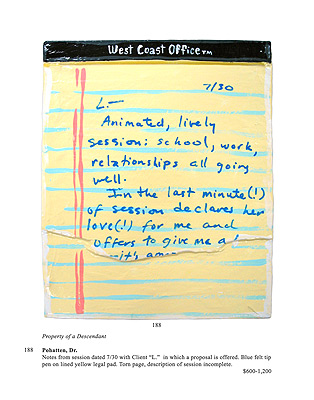 West Coast Office™
7/30
L.—
Animated, lively
session: school, work,
relationships all going
well.
In the last minute(!)
of session declares her
love(!) for me and
offers to give me a
188
Property of a Descendant
188 Pohatten, Dr.
Notes from session dated 7/30 with Client "L." in which a proposal is offered. Blue felt tip
pen on lined yellow legal pad. Torn page, description of session incomplete.
$600-1,200